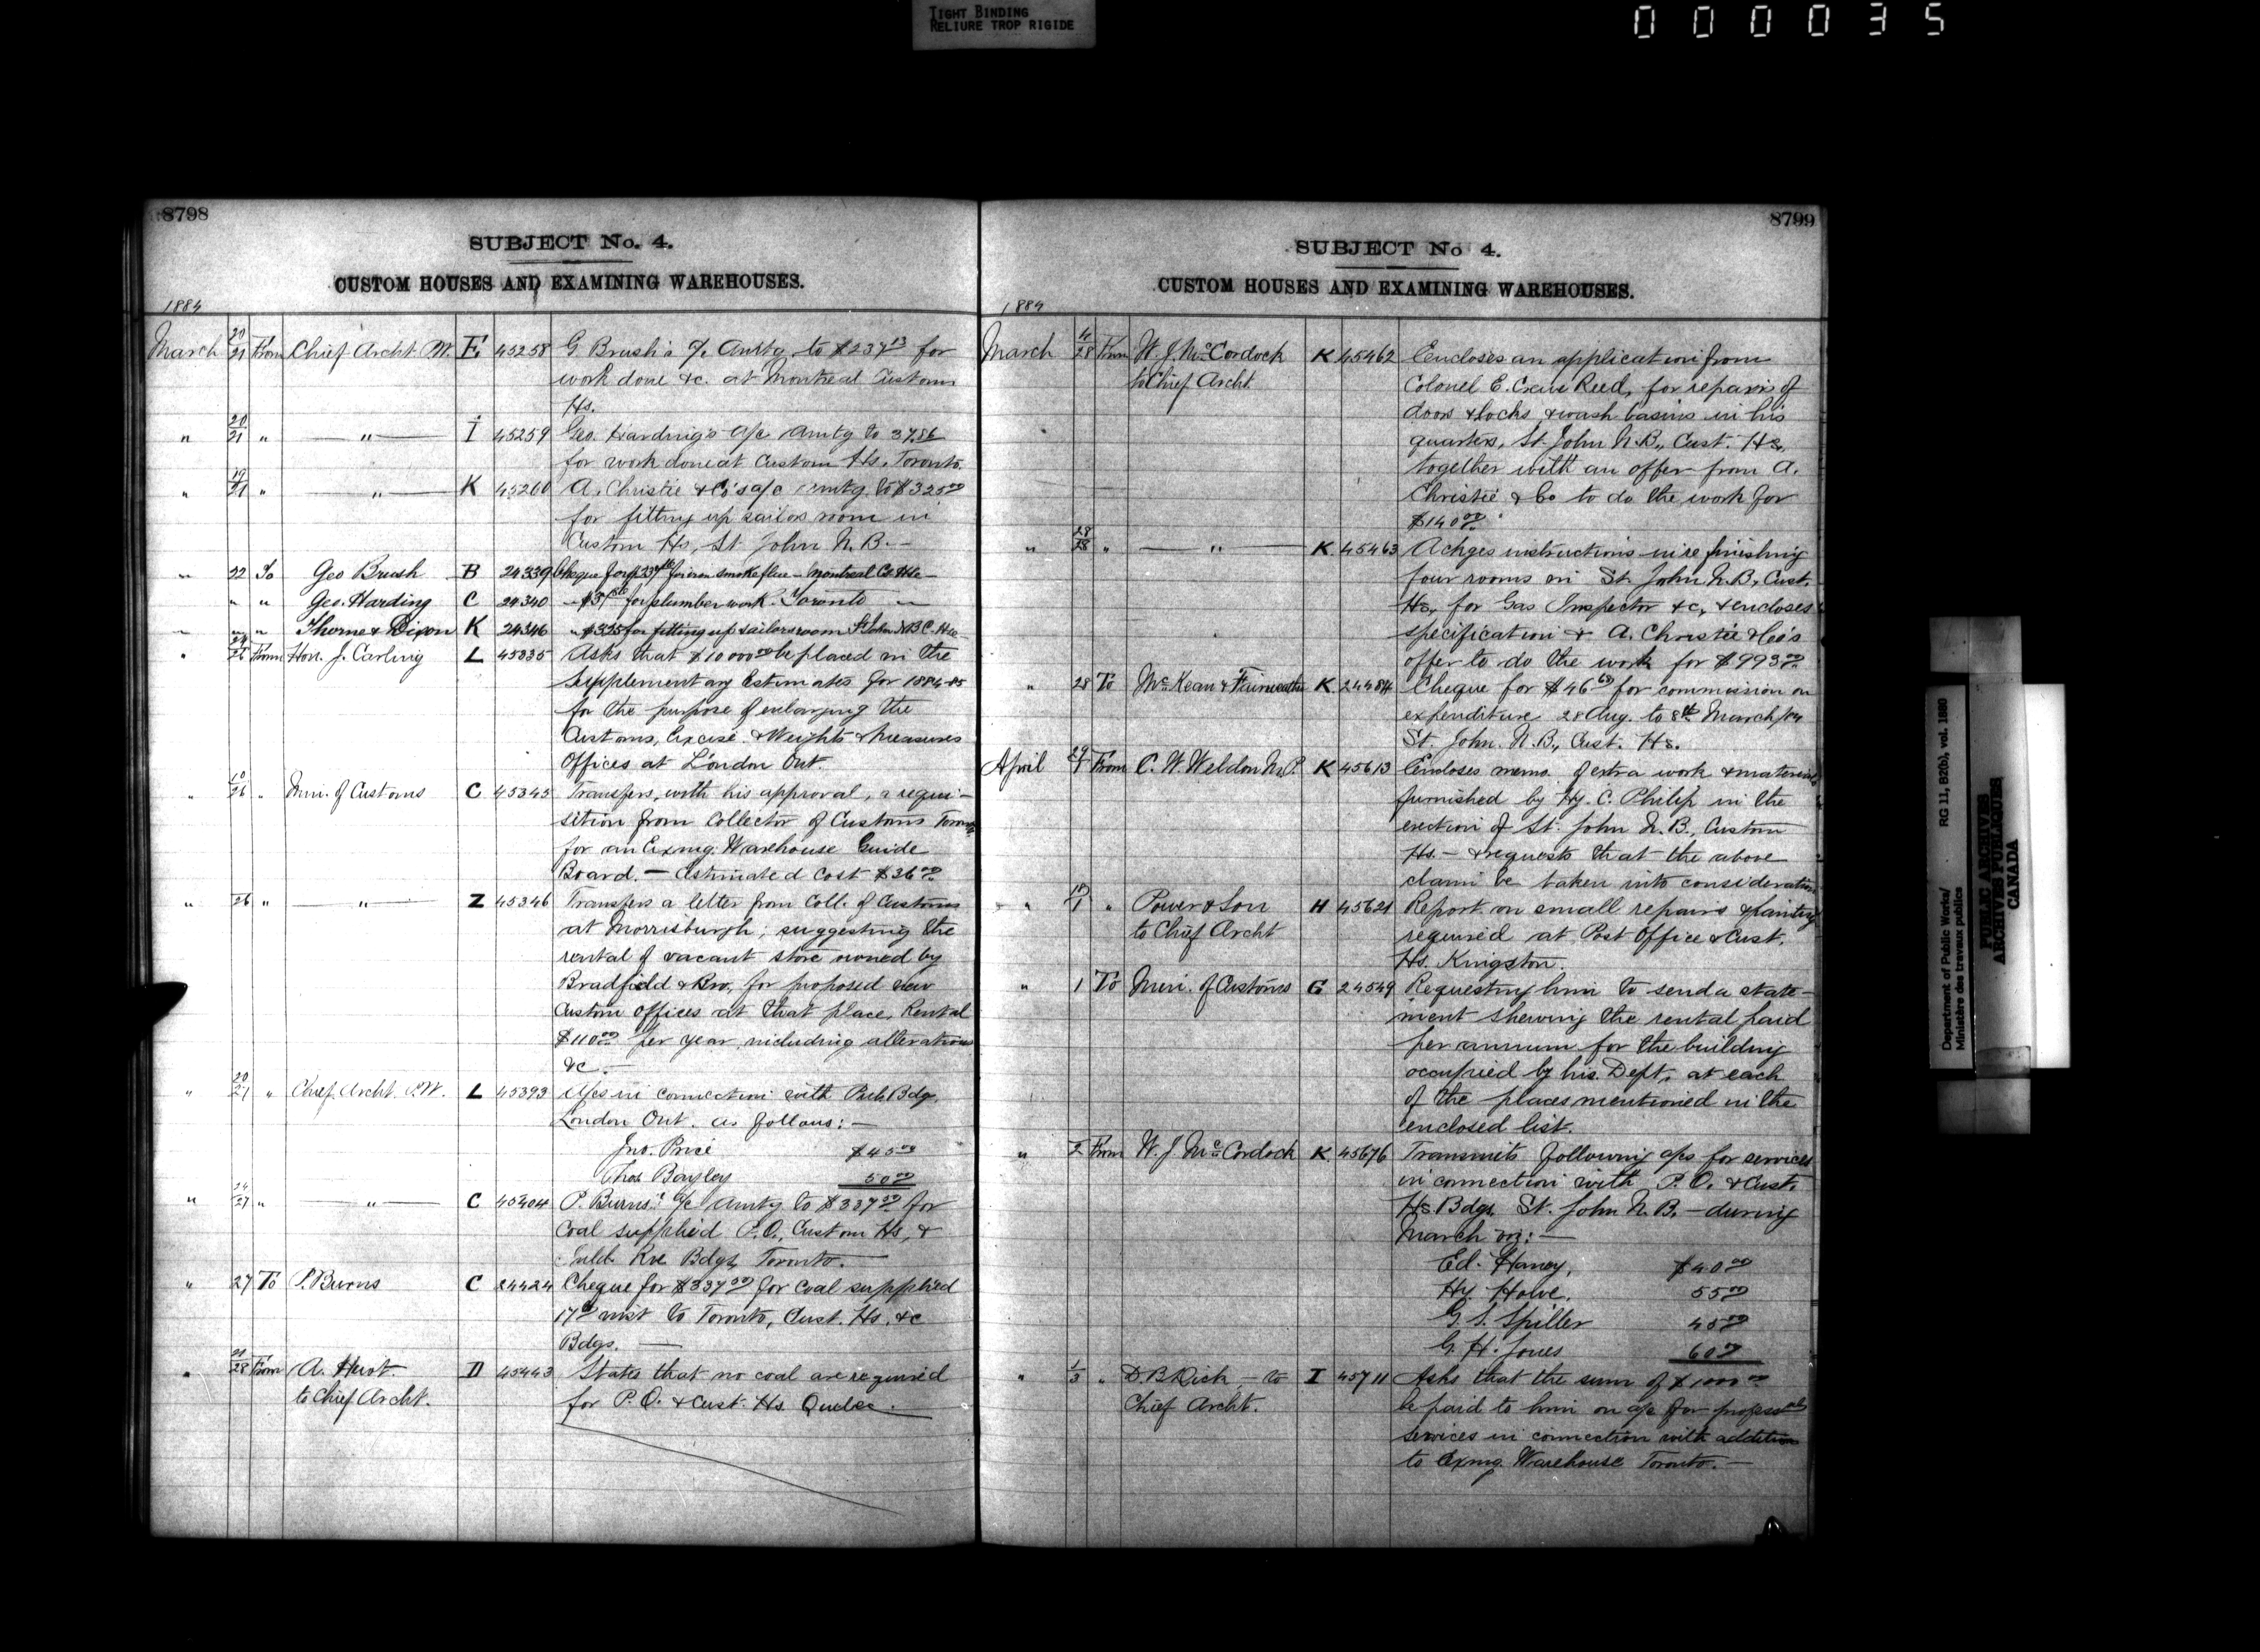 TIGHT BINDING
RELIURE TROP RIGIDE
000035
8798
SUBJECT No. 4.
CUSTOM HOUSES AND EXAMINING WAREHOUSES.
1884
March 20/21 From Chief Archt. P.W. E 45258 G Brush's a/c Amtg to $237.13 for
work done &c. at Montreal Customs
Hs.
" 20/21 " — " — I 45259 Geo. Harding's a/c Amtg to 37.86
for work done at Custom Hs. Toronto.
" 19/21 " — " — K 45260 A. Christie & Co's a/c amtg to $325.00
for fitting up sailors room in
Custom Hs, St John N.B. —
" 22 To Geo Brush B 24339 Cheque for for iron smoke flue — Montreal C. Hse —
" " " Geo. Harding C 24340 for plumber work Toronto "
" " " Thorne & Dixon K 24346 " $325 for fitting up sailors room St John N.B. C. Hse —
" 24/26 From Hon. J. Carling L 45335 Asks that $10000.00 be placed in the
Supplementary Estimates for 1884-85
for the purpose of enlarging the
Customs, Excise & Weights & Measures
Offices at London Ont.
" 10/26 " Min. of Customs C 45345 Transfers, with his approval, a requi-
sition from Collector of Customs Toronto
for an Exmg. Warehouse Guide
Board. — Estimated cost $36.00
" 26 " — " — Z 45346 Transfers a letter from Coll. of Customs
at Morrisburgh, suggesting the
rental of vacant store owned by
Bradfield & Bro, for proposed new
Custom Offices at that place, Rental
$110.00 per year including alterations
&c. —
" 20/27 " Chief Archt. P.W. L 45393 A/cs in connection with Pub. Bdg,
London Ont. as follows: —
Jno. Price $45.00
Thos Bayley 50.00
" 24/27 " — " — C 45404 P. Burns' a/c Amtg to $337.50 for
Coal supplied P.O., Custom Hs, &
Inld. Rve Bdgs, Toronto. —
" 27 To P. Burns C 24424 Cheque for $337.50 for coal supplied
17th inst to Toronto, Cust. Hs. &c
Bdgs. —
" 28 From A. Huot D 45443 States that no coal are required
to Chief Archt. for P.O. & Cust. Hs. Quebec. —
8799
SUBJECT No 4.
CUSTOM HOUSES AND EXAMINING WAREHOUSES.
1884
March 4/28 From W. J. McCordock K 45462 Encloses an application from
to Chief Archt. Colonel E. Reed, for repairs of
doors & locks & wash basins in his
quarters, St. John N.B., Cust. Hs,
together with an offer from A.
Christie & Co to do the work for
$140.00
" 28/28 " — " — K 45463 Ackges instructions in re finishing
four rooms in St. John N.B. Cust.
Hs, for Gas Inspector &c, & encloses
specification & A. Christie & Co's
offer to do the work for $993.00
" 28 To McKean & Fairweather K 24484 Cheque for $46.69 for commission on
expenditure 28 Aug. to 8th March/84
St. John. N.B., Cust. Hs.
April 29/1 From C. W. Weldon M.P. K 45613 Encloses memo. of extra work & materials
furnished by Hy. C. Philip in the
erection of St. John N.B., Custom
Hs. — & requests that the above
claim be taken into consideration
" 1 " Power & Son H 45621 Report on small repairs & painting
to Chief Archt required at Post Office & Cust.
Hs. Kingston.
" 1 To Min. of Customs G 24549 Requesting him to send a state-
ment shewing the rental paid
per annum for the building
occupied by his Dept, at each
of the places mentioned in the
enclosed list.
" 2 From W. J. McCordock K 45676 Transmits following a/cs for services
in connection with P.O. & Cust.
Hs. Bdgs, St. John N.B, — during
March viz: —
Ed. Haney, $40.00
Hy. Howe, 55.00
G. S. Spiller 45.00
G. H. Jones 60.00
" 1/3 " D. B. Dick, — to I 45711 Asks that the sum of $1000.00
Chief Archt. be paid to him on a/c for professnal
services in connection with addition
to Exmg. Warehouse Toronto. —
Department of Public Works/ RG 11, B2(b), vol. 1880
Ministère des travaux publics
PUBLIC ARCHIVES
ARCHIVES PUBLIQUES
CANADA